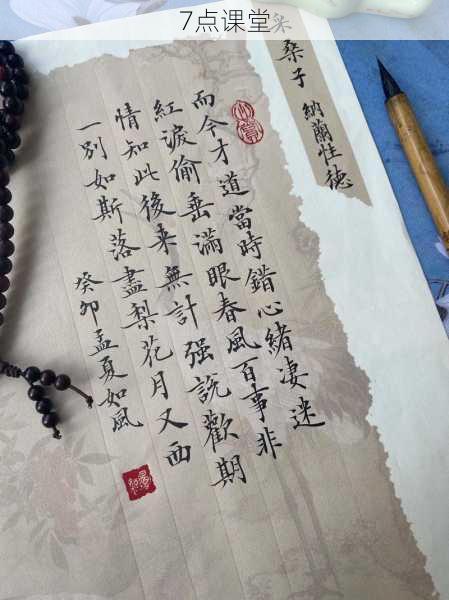 7点课堂
采桑子 納蘭性德
而今才道當時錯心緒凄迷
紅淚偷垂滿眼春風百事非
情知此後来無計强說歡期
一別如斯落盡梨花月又西
癸卯孟夏如風